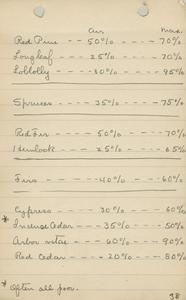 Av. Max.
Red Pine -- 50% --- 70%
Longleaf -- 25% --- 70%
Loblolly --- 80% --- 95%
Spruces --- 35% --- 75%
Red Fir --- 50% --- 70%
Hemlock -- 25% --- 65%
Firs --- 40% --- 60%
Cypress --- 30% --- 60%
* Incense Cedar --- 35% --- 50%
Arbor vitae -- 60% --- 90%
Red Cedar --- 20% --- 80%
* Often all poor.